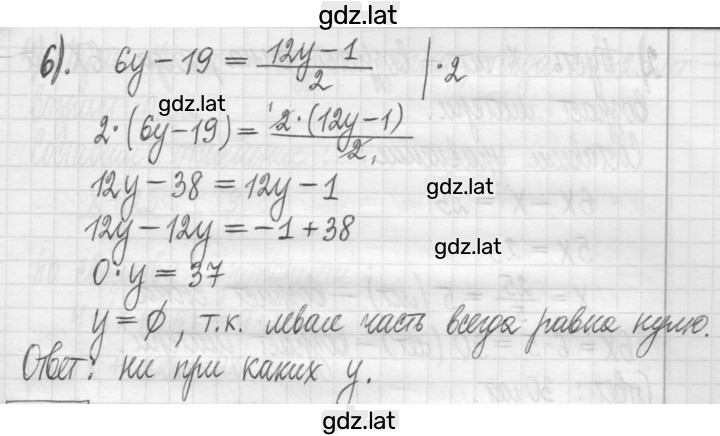 gdz.lat
б). 6y − 19 = (12y − 1)/2 | · 2
gdz.lat
2 · (6y − 19) = 2 · (12y − 1)/2
12y − 38 = 12y − 1
gdz.lat
12y − 12y = −1 + 38
gdz.lat
0 · y = 37
y = ∅, т.к. левая часть всегда равна нулю.
Ответ: ни при каких y.
gdz.lat